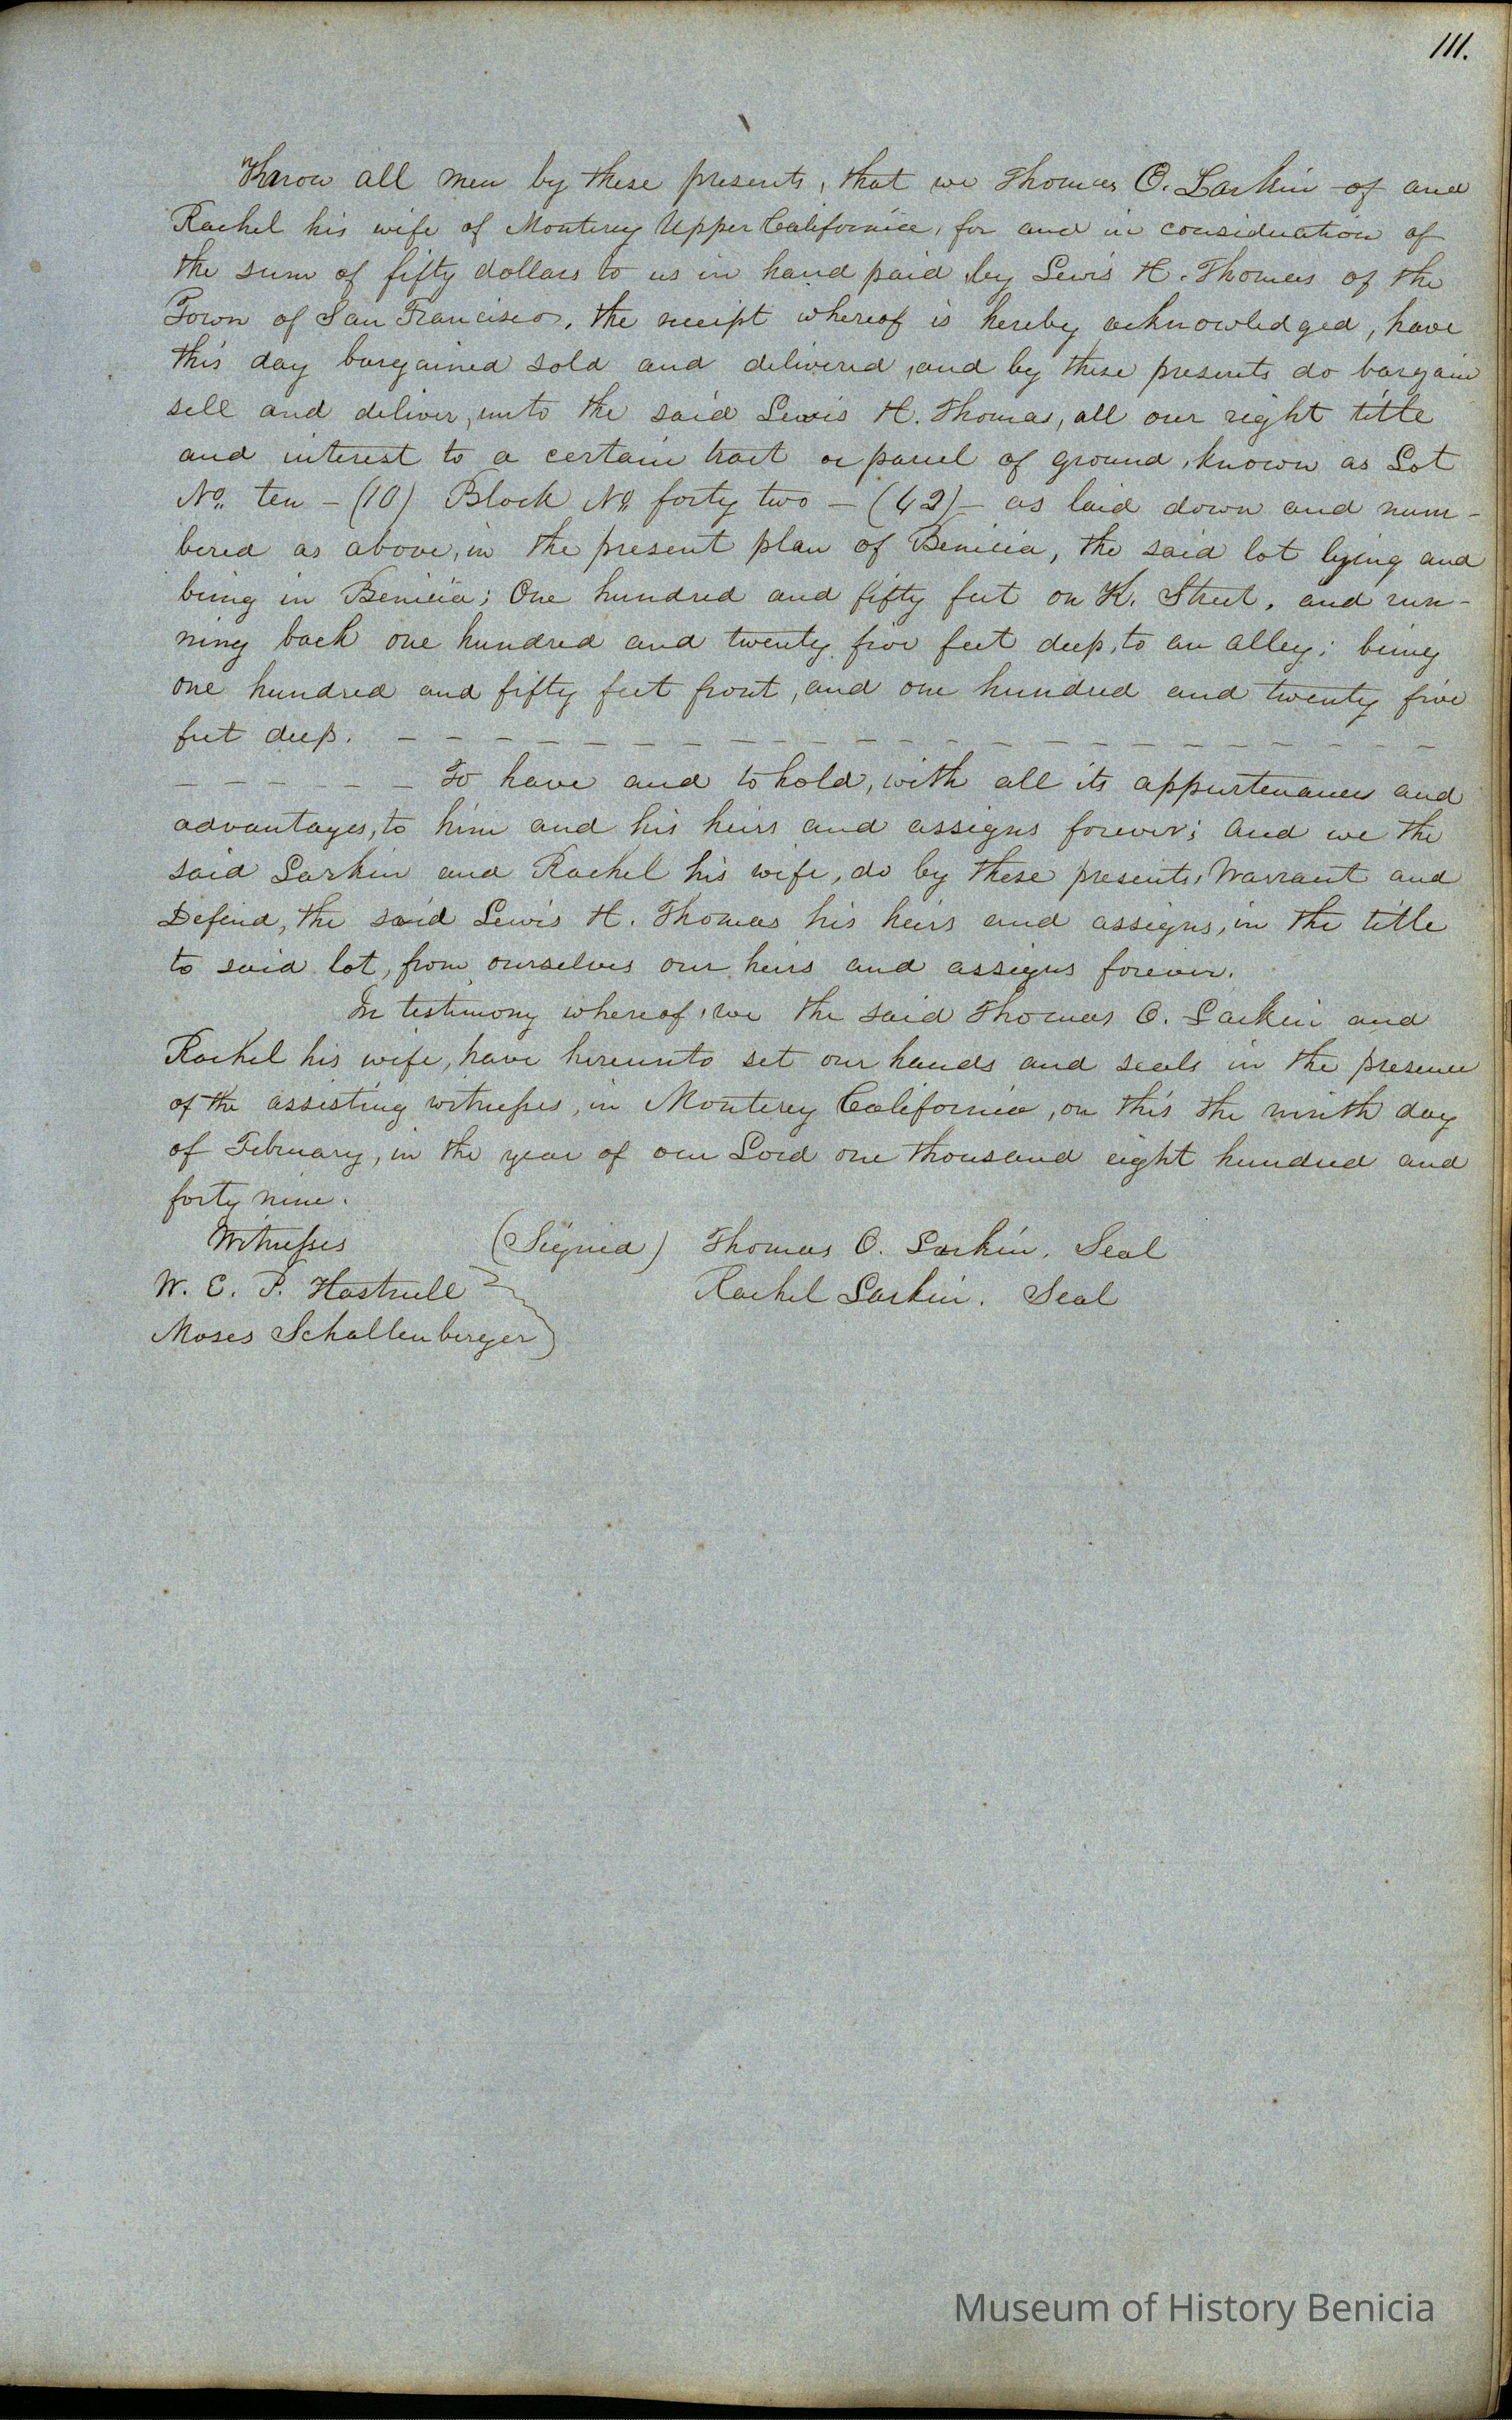 111.
Know all men by these presents, that we Thomas O. Larkin of and
Rachel his wife of Monterey Upper California, for and in consideration of
the sum of fifty dollars to us in hand paid by Lewis H. Thomas of the
Town of San Francisco, the receipt whereof is hereby acknowledged, have
this day bargained sold and delivered, and by these presents do bargain
sell and deliver, unto the said Lewis H. Thomas, all our right title
and interest to a certain tract or parcel of ground, known as Lot
No. ten – (10) Block No. forty two – (42) – as laid down and num-
bered as above, in the present plan of Benicia, the said lot lying and
being in Benicia; One hundred and fifty feet on K. Street, and run-
ning back one hundred and twenty five feet deep, to an alley; being
one hundred and fifty feet front, and one hundred and twenty five
feet deep. – – – – – – – – – – – – – – – – – – – – – –
– – – – – To have and to hold, with all its appurtenances and
advantages, to him and his heirs and assigns forever; and we the
said Larkin and Rachel his wife, do by these presents, Warrant and
Defend, the said Lewis H. Thomas his heirs and assigns, in the title
to said lot, from ourselves our heirs and assigns forever.
In testimony whereof, we the said Thomas O. Larkin and
Rachel his wife, have hereunto set our hands and seals in the presence
of the assisting witnesses, in Monterey California, on this the ninth day
of February, in the year of our Lord one thousand eight hundred and
forty nine.
Witnesses (Signed) Thomas O. Larkin. Seal
W. E. P. Hartnell Rachel Larkin. Seal
Moses Schallenberger
Museum of History Benicia